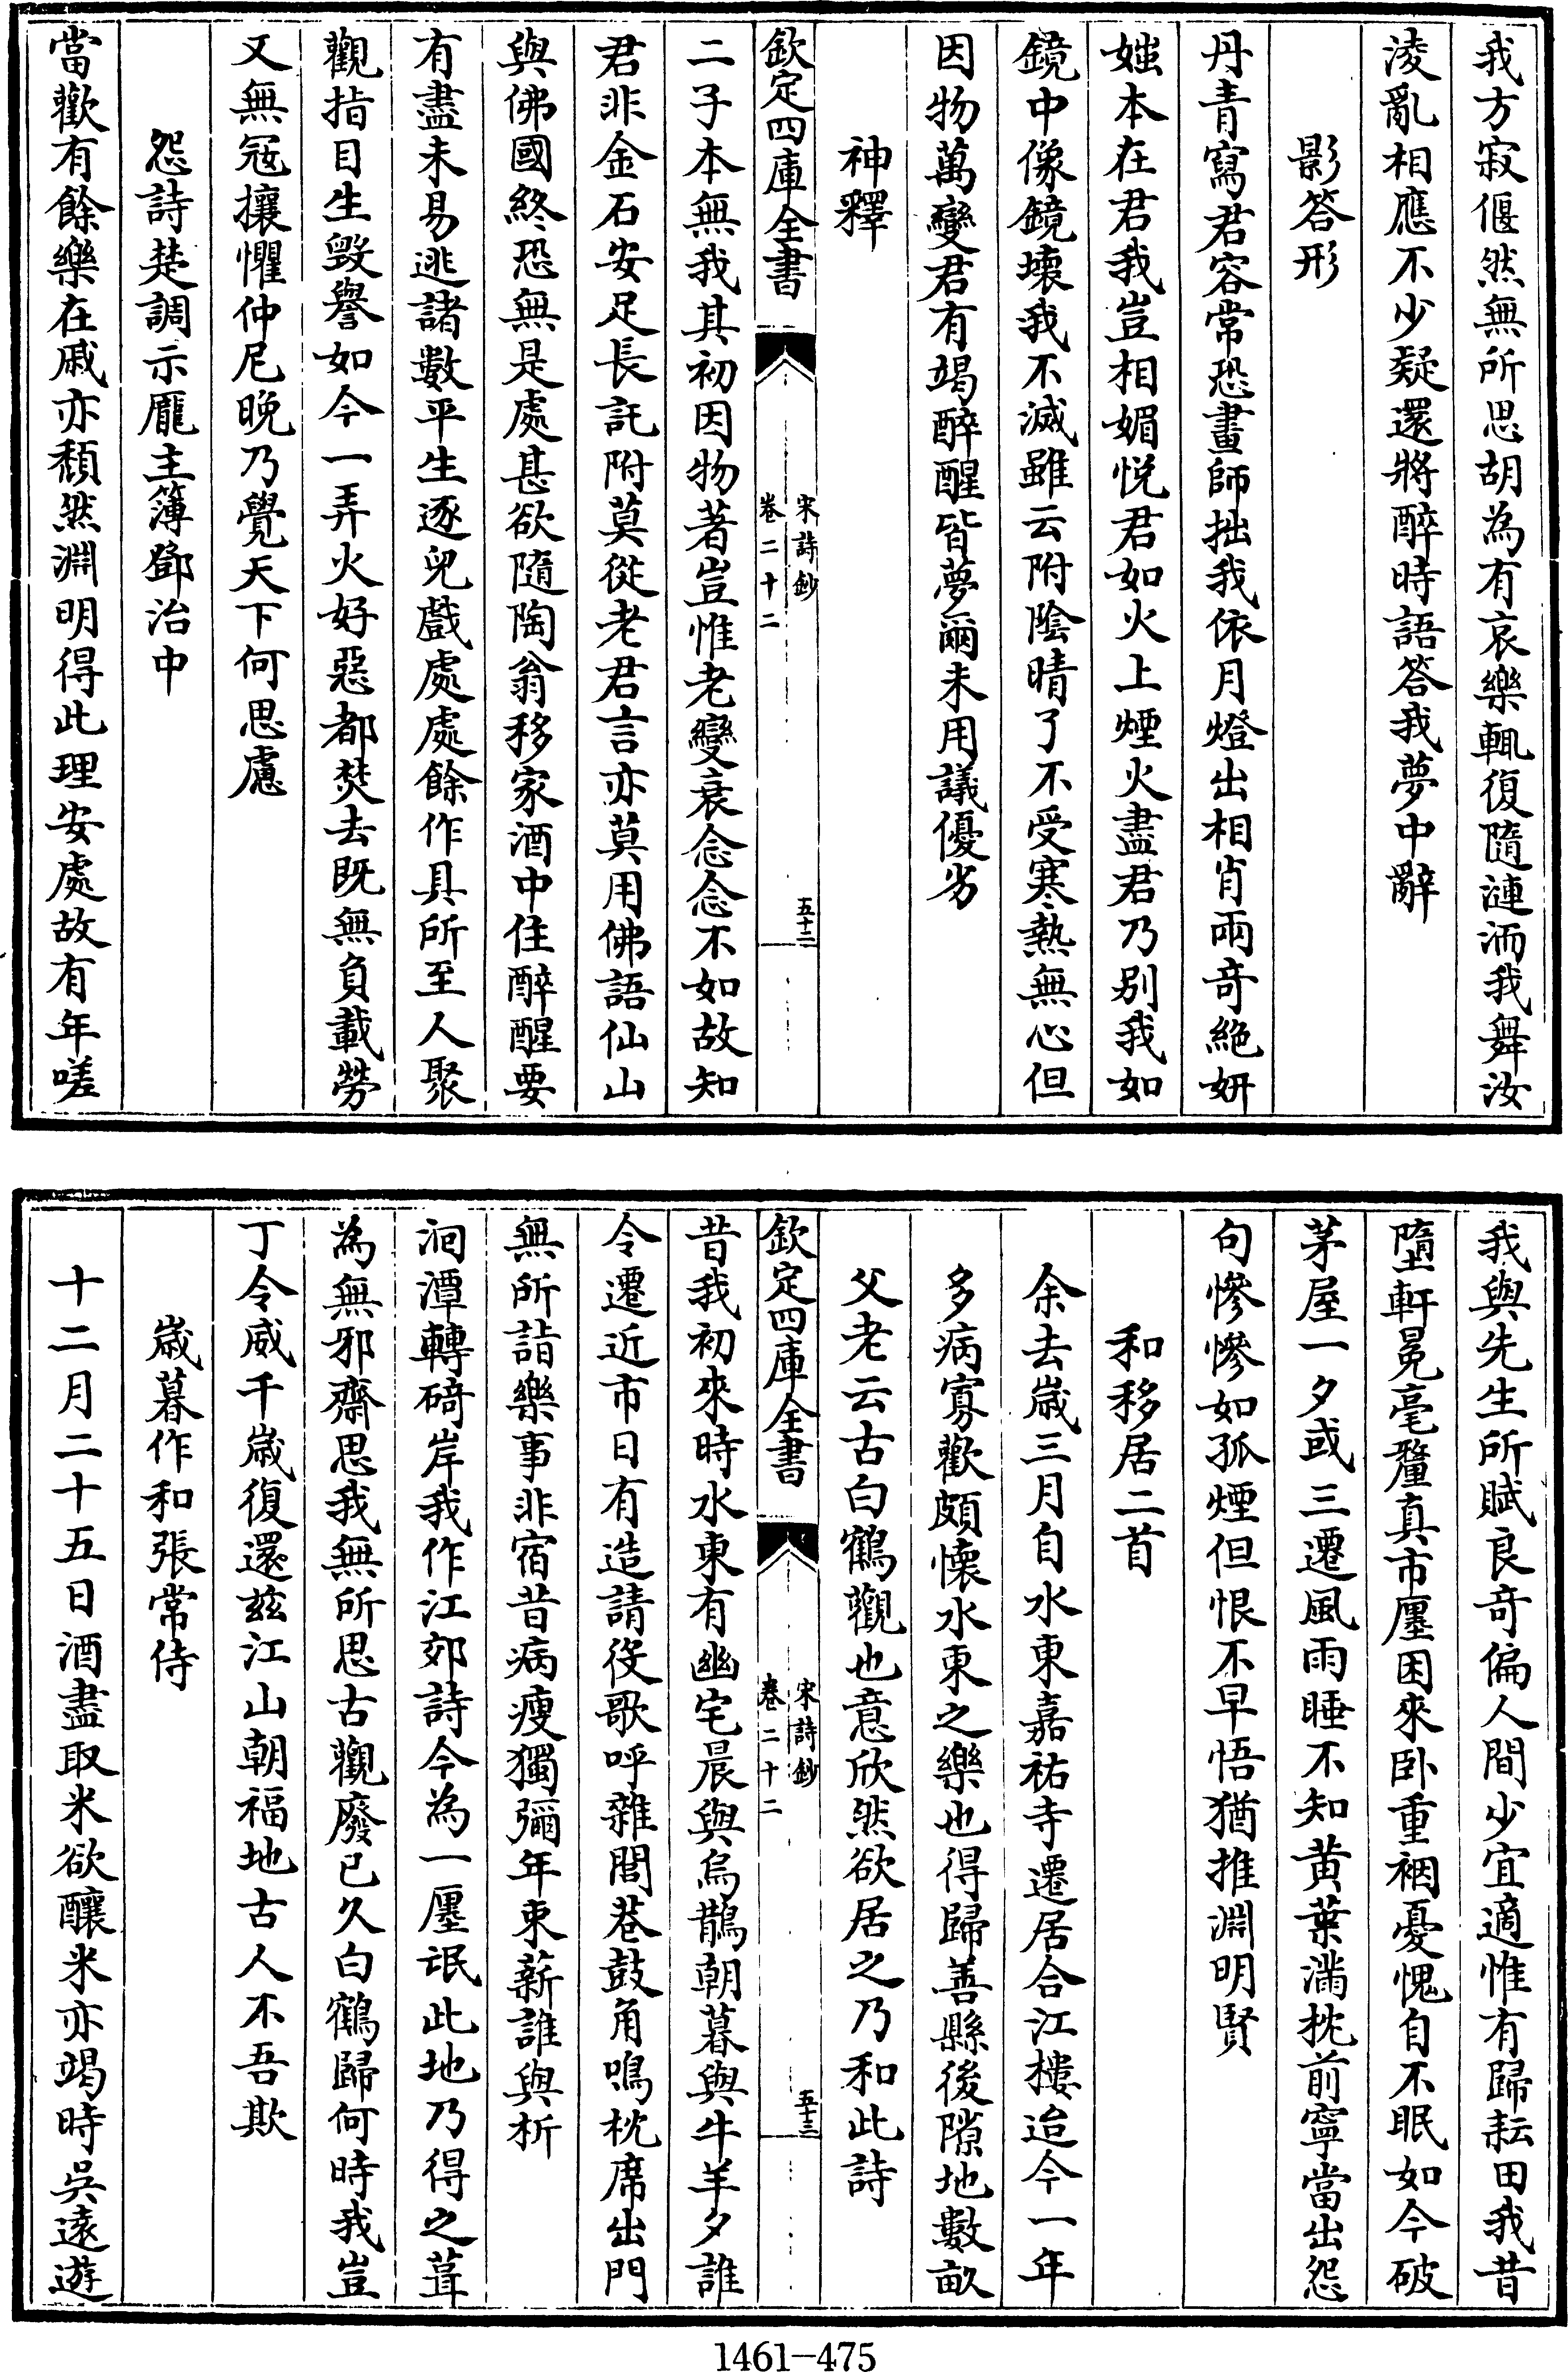 我方寂偃然無所思胡為有哀樂輒復隨漣洏我舞汝
淩亂相應不少疑還將醉時語答我夢中辭
影答形
丹青寫君容常恐畫師拙我依月燈出相肖兩奇絶妍
媸本在君我豈相媚悅君如火上煙火盡君乃别我如
鏡中像鏡壊我不滅雖云附隂晴了不受寒熱無心但
因物萬變君有竭醉醒皆夢爾未用議優劣
神釋
欽定四庫全書
宋詩鈔
卷二十二
五十二
二子本無我其初因物著豈惟老變衰念念不如故知
君非金石安足長託附莫從老君言亦莫用佛語仙山
與佛國終恐無是處甚欲隨陶翁移家酒中住醉醒要
有盡未易逃諸數平生逐兒戲處處餘作具所至人聚
觀指目生毀譽如今一弄火好惡都焚去既無負載勞
又無冦攘懼仲尼晚乃覺天下何思慮
怨詩楚調示龎主簿鄧治中
當歡有餘樂在戚亦頹然淵明得此理安處故有年嗟
我與先生所賦良奇偏人間少宜適惟有歸耘田我昔
墮軒冕毫釐真市廛困來卧重裀憂愧自不眠如今破
茅屋一夕或三遷風雨睡不知黄葉滿枕前寧當出怨
句慘慘如孤煙但恨不早悟猶推淵明賢
和移居二首
余去歳三月自水東嘉祐寺遷居合江樓迨今一年
多病寡歡頗懷水東之樂也得歸善縣後隙地數畝
父老云古白鶴觀也意欣然欲居之乃和此詩
欽定四庫全書
宋詩鈔
卷二十二
五十三
昔我初來時水東有幽宅晨與烏鵲朝暮與牛羊夕誰
令遷近市日有造請役歌呼雜閭巷鼓角鳴枕席出門
無所詣樂事非宿昔病瘦獨彌年束薪誰與析
洄潭轉碕岸我作江郊詩今為一廛氓此地乃得之葺
為無邪齋思我無所思古觀廢已久白鶴歸何時我豈
丁令威千歳復還兹江山朝福地古人不吾欺
歳暮作和張常侍
十二月二十五日酒盡取米欲釀米亦竭時吳逺遊
1461-475